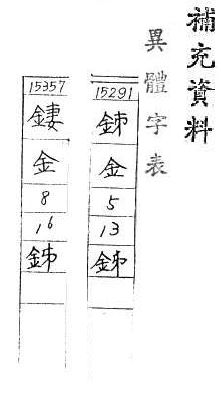 補充資料
異體字表
15291
金
5
13
15357
金
8
16